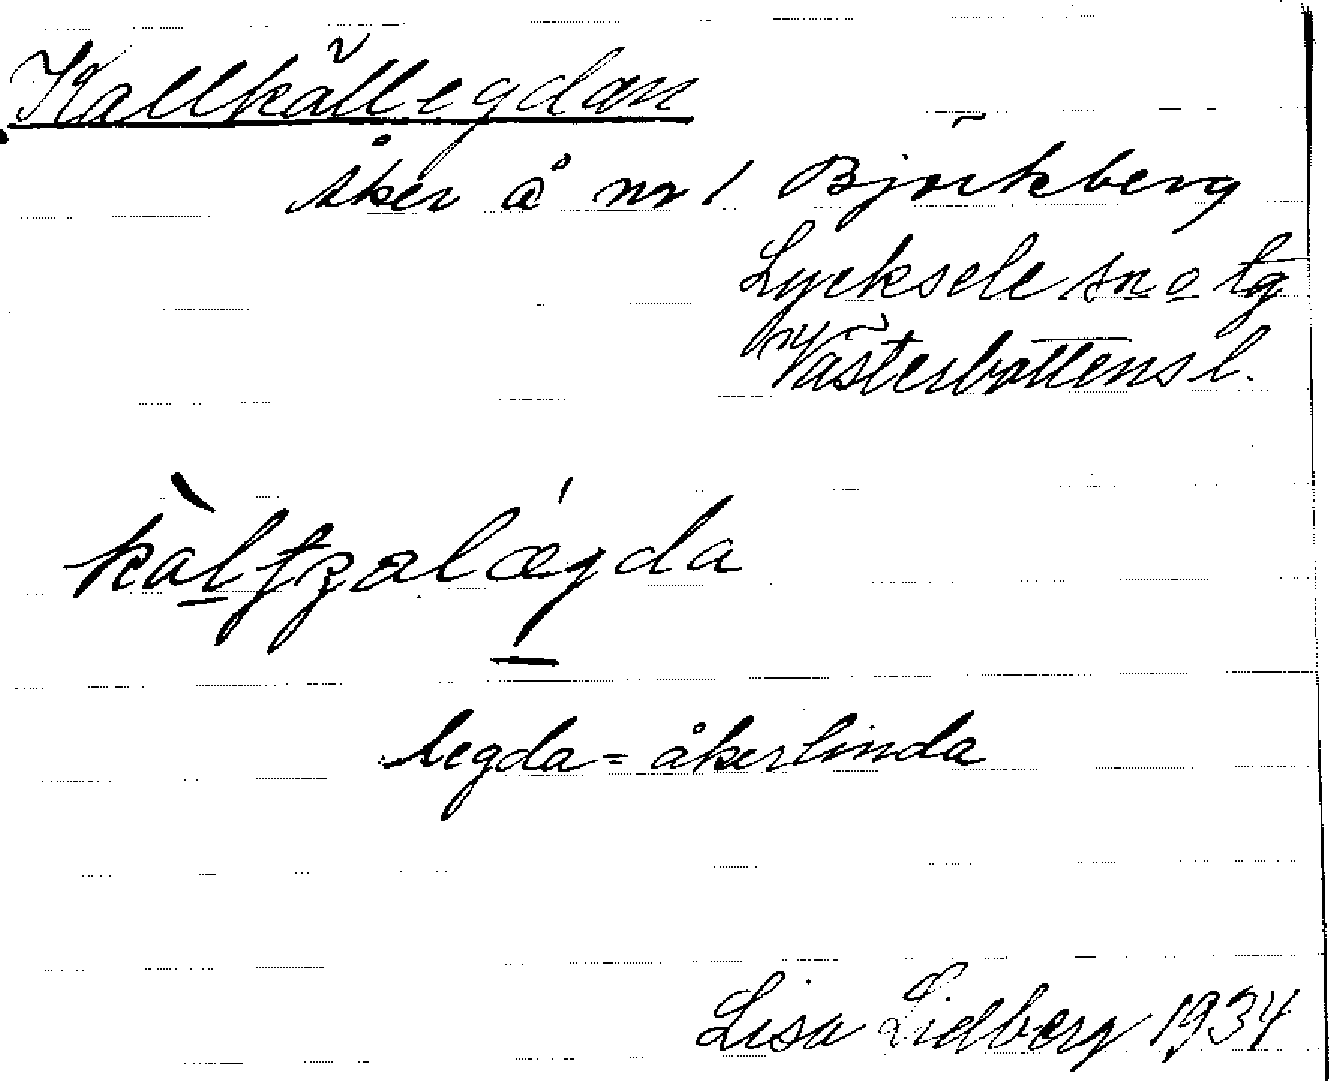 Kallkällegdan
åker å nr 1 Björkberg
Lycksele sn o tg
Västerbottens l.
legda = åkerlinda
Lisa Lidberg 1934